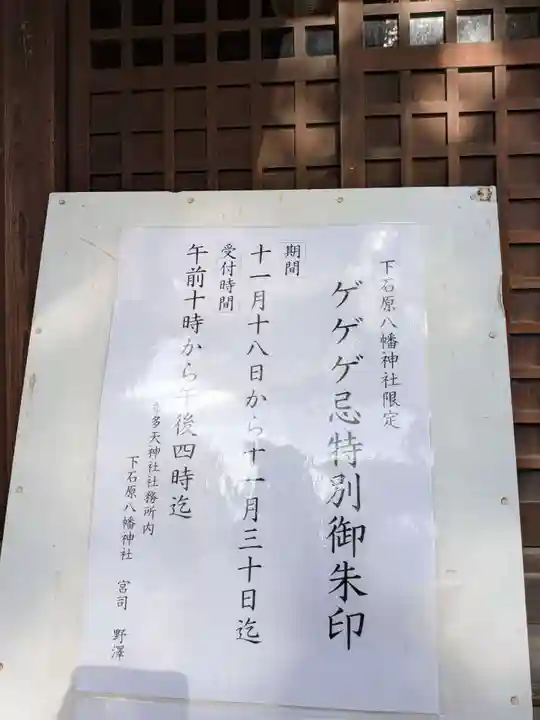 下石原八幡神社限定
ゲゲゲ忌特別御朱印
期間
十一月十八日から十一月三十日迄
受付時間
午前十時から午後四時迄
多天神社社務所内
下石原八幡神社 宮司 野澤